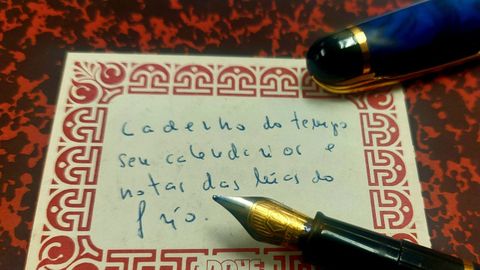 caderno do tempo
sen calendarios e
notas das lúas do
frío.